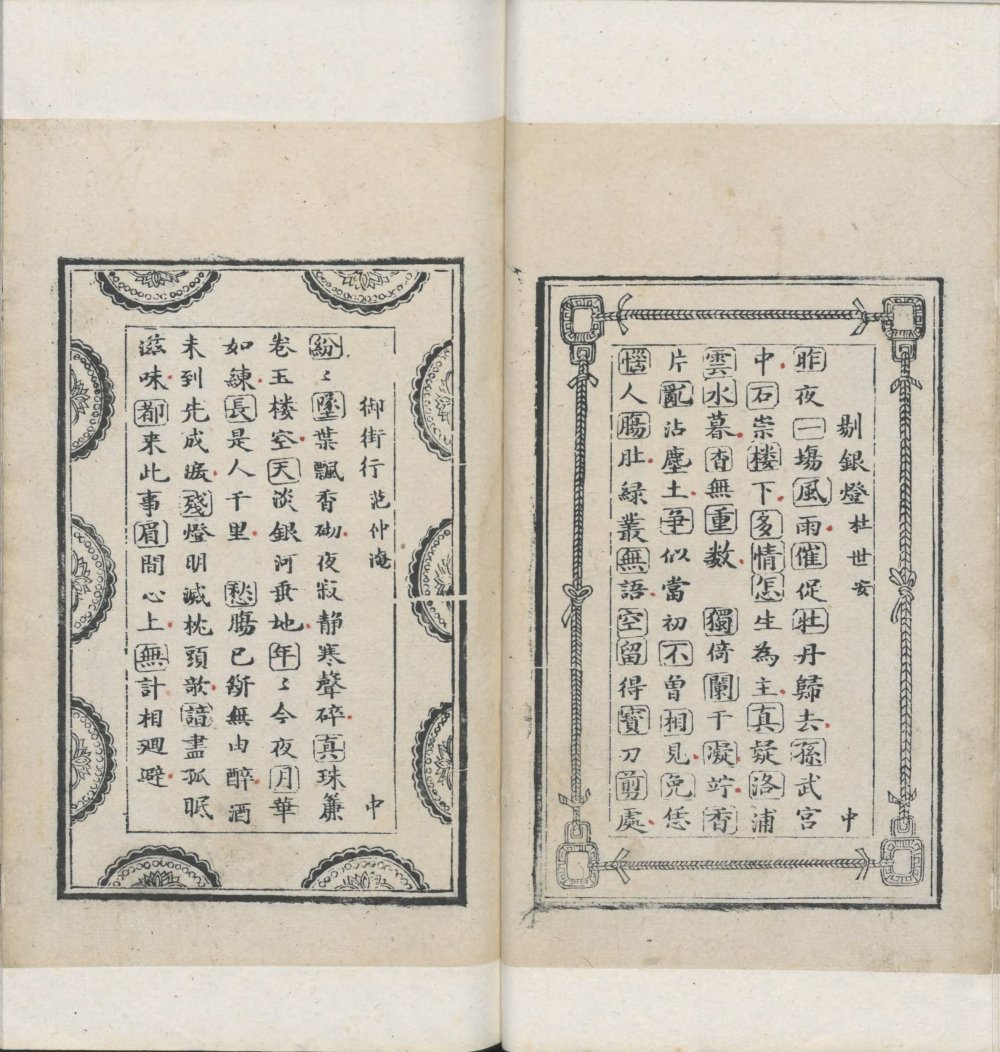 剔銀燈 杜世安 中
昨夜一塲風雨催促牡丹歸去孫武宮
中石崇楼下多情怎生為主真疑洛浦
雲水暮杳無重数 獨倚闌干凝竚香
片亂沾塵土爭似當初不曾相見免恁
惱人膓肚緑叢無語空留得寳刀剪處
御街行 范仲淹 中
紛〻墜葉飄香砌夜寂静寒聲碎真珠簾
卷玉楼空天淡銀河垂地年〻今夜月華
如練長是人千里 愁膓已断無由醉酒
未到先成淚殘燈明滅枕頭欹諳盡孤眠
滋味都来此事眉間心上無計相廻避